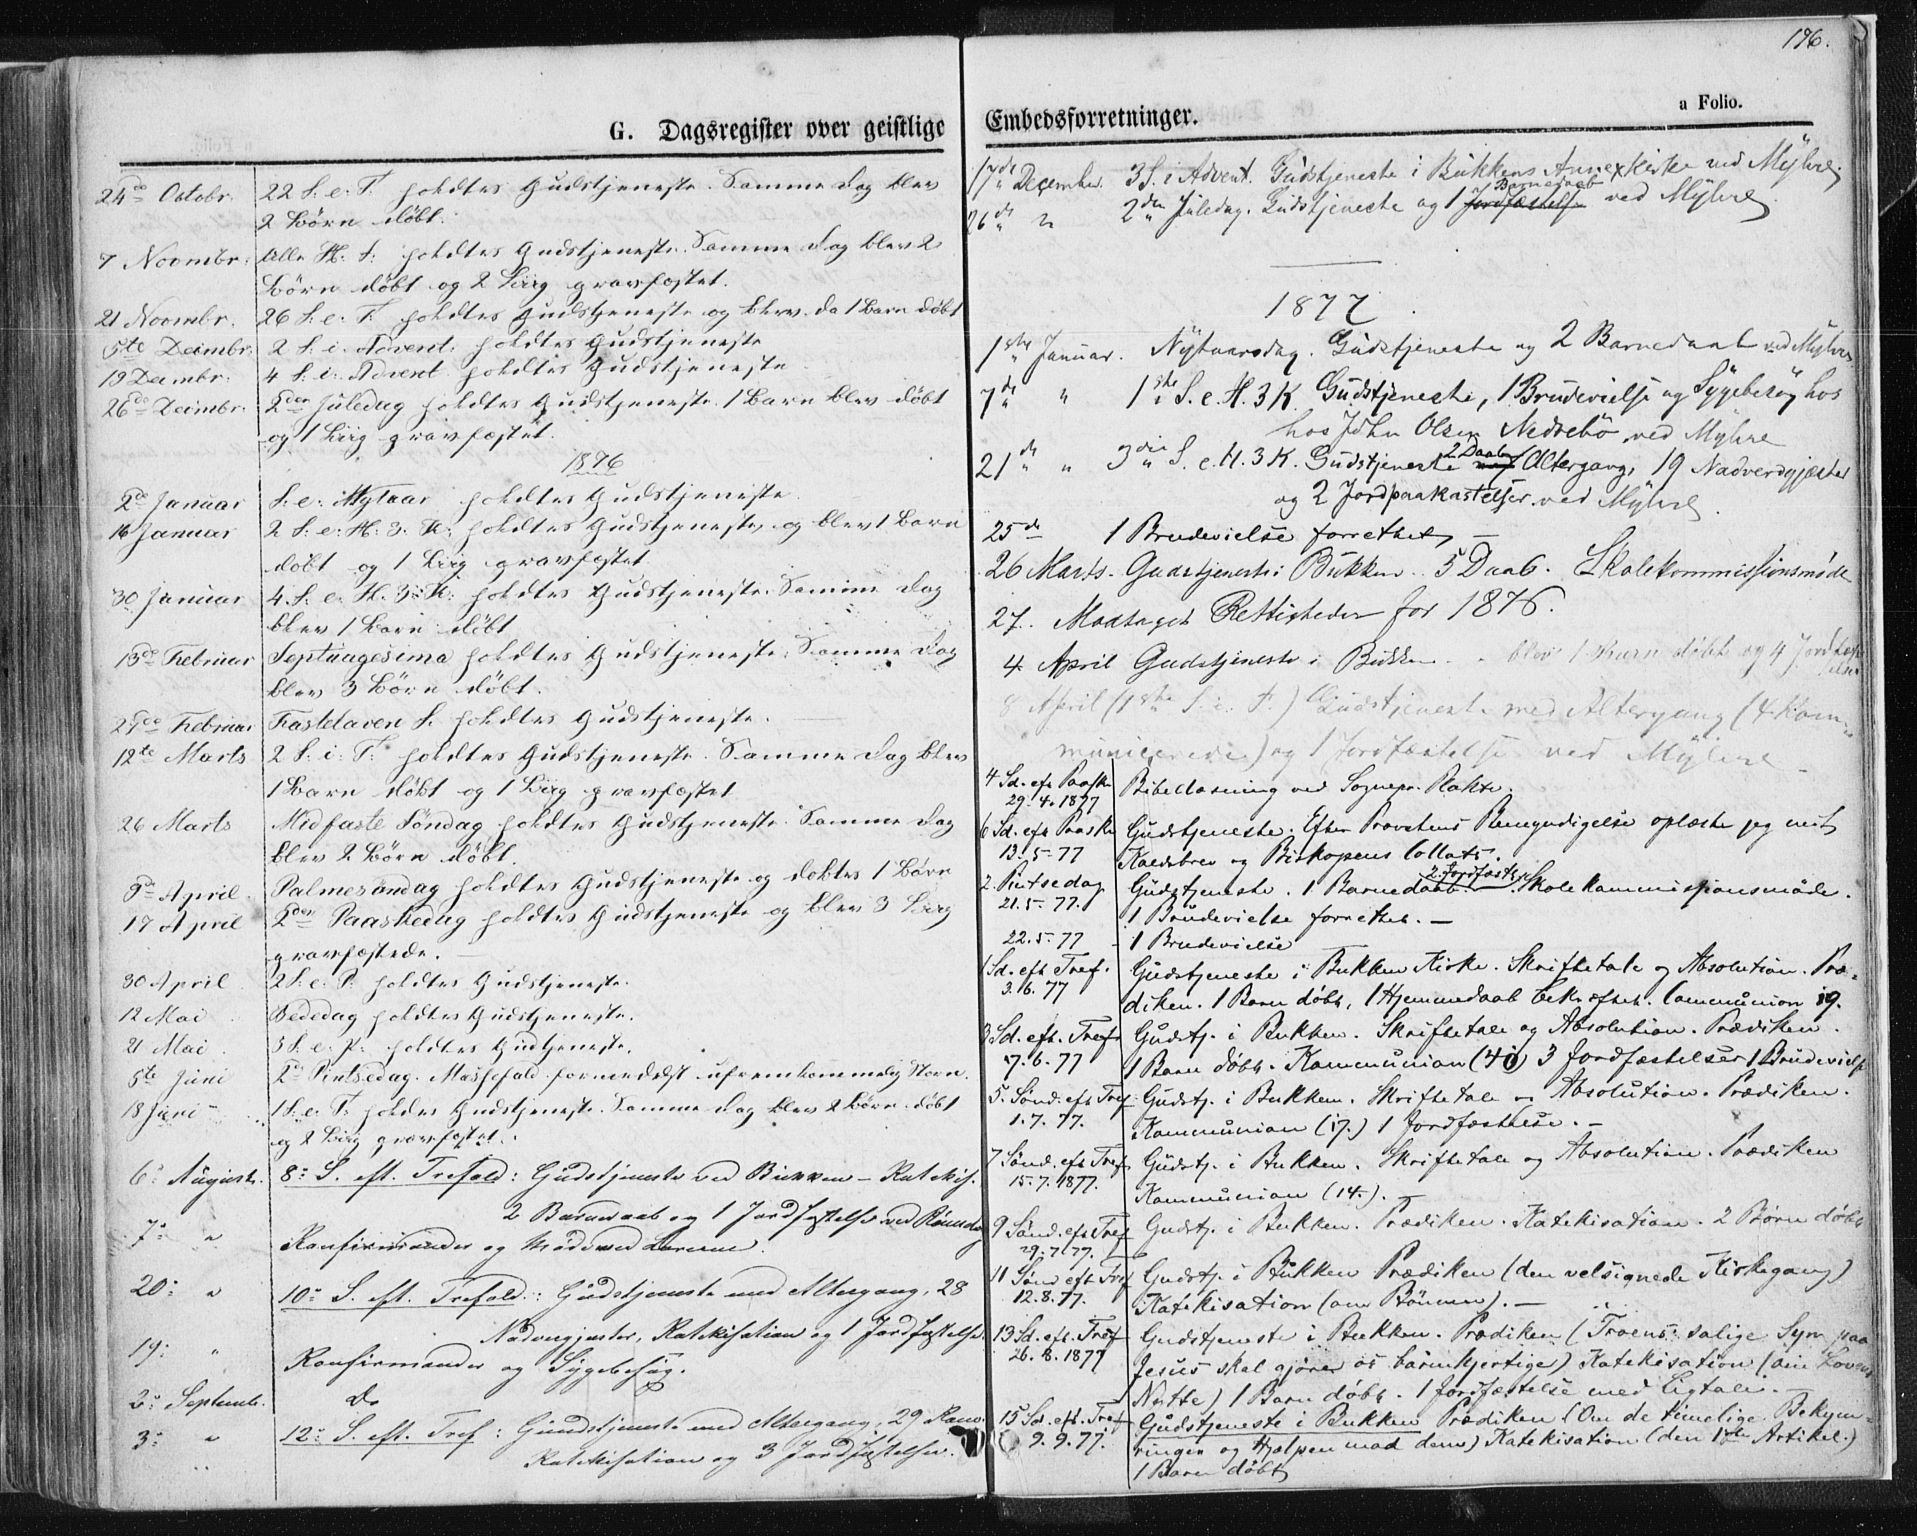 196.
a Folio.
G. Dagsregister over geistlige Embedsforretninger.
24de Octobr. 22 S. e. T. holdtes Gudstjeneste. Samme Dag blev
2 Børn døbt.
7 Novmbr. Alle H. S. holdtes Gudstjeneste. Samme Dag blev 2
Børn døbt og 2 Liig gravfæstet.
21 Novmbr. 26 S. e. T. holdtes Gudstjeneste og blev da 1 Barn døbt
5te Decmbr. 2 S. i. Advent. holdtes Gudstjeneste
19 Decmbr. 4 S. i. Advent holdtes Gudstjeneste
26de Decmbr. 2den Juledag holdtes Gudstjeneste. 1 Barn blev døbt
og 1 Liig gravfæstet.
1876
2de Januar S. e. Nytaar holdtes Gudstjeneste.
16 Januar 2 S. e. H. 3. K. holdtes Gudstjeneste og blev 1 Barn
døbt og 1 Liig gravfæstet
30 Januar 4. S. e. H. 3. K. holdtes Gudstjeneste. Samme Dag
blev 1 Barn døbt
13de Februar Septuagesima holdtes Gudstjeneste. Samme Dag
blev 3 Børn døbt.
27de Februar Fastelaven S. holdtes Gudstjeneste.
12te Marts 2 S. i. F. holdtes Gudstjeneste. Samme Dag blev
1 Barn døbt og 1 Liig gravfæstet
26 Marts Midfaste Söndag holdtes Gudstjeneste. Samme Dag
blev 2 Børn døbt.
9de April Palmesöndag holdtes Gudstjeneste og døbtes 1 Børn
17 April 2den Paaskedag holdtes Gudstjeneste og blev 3 Liig
gravfæstede.
30 April 2 S. e. P. holdtes Gudstjeneste.
12 Mai Bededag holdtes Gudstjeneste.
21 Mai 5 S. e. P. holdtes Gudtjeneste.
5te Juni 2n Pintsedag. Messefald formedelst ufremkommelig Storm.
18 Juni 1 S. e. T. holdtes Gudstjeneste. Samme Dag blev 2 Børn døbt
og 2 Liig gravfæstet.
6: August. 8: S. eft. Trefold: Gudstjeneste ved Bukken – Katekis.
2 Barnedaab og 1 Jordfæstelse ved
7: " Konfirmander og Møde med Lærerne.
20: " 10: S. eft. Trefold.: Gudstjeneste med Altergang, 28
Nadvergjester, Katekisation og 1 Jordfæstelse.
19: " Konfirmander og Sygebesøg.
2: Septemb. Do
3: " 12: S. eft. Tref: Gudstjeneste med Altergang, 29 Kom.
Katekisation og 3 Jordfæstelser.
17de December. 3 S. i Advent. Gudstjeneste i Bukkens Annexkirke ved Myhre.
Barnedaab
26de " 2den Juledag. Gudstjeneste og 1 Jordfæstelse ved Myhre.
1877.
1ste Januar. Nytaarsdag. Gudstjeneste og 2 Barnedaab ved Myhre
7de " 1ste S. e. H. 3 K. Gudstjeneste, 1 Brudevielse og Sygebesøg hos
hos John Olsen Nedrebö ved Myhre
2 Daab
21de " 3die S. e. H. 3 K. Gudstjeneste med Altergang, 19 Nadverdgjæster
og 2 Jordpaakastelser ved Myhre.
25de 1 Brudevielse forrettet –
26 Marts. Gudstjeneste i Bukken. 5 Daab. Skolekommissionsmøde
27. Modtaget Rettigheder for 1876.
4 April Gudstjeneste i Bukken. blev 1 Barn døbt og 4 Jordfæst
elser
8 April (1ste S. e. P.) Gudstjeneste med Altergang (4 Kom=
municerede) og 1 Jordfæstelse ved Myhre –
4 Sd. eft Paaske
29.4.1877 Bibellæsning ved Sognepr. Rakte.
6 Sd. eft Paaske
13.5.77 Gudstjeneste. Efter Provstens Bemyndigelse oplæste jeg mit
Kaldsbrev og Biskopens Collats.
2 Jordfæstelser
2. Pintsedag
21.5.77. Gudstjeneste. 1 Barnedaab. Skolekommissionsmøde.
1 Brudevielse forrettet. –
22.5.77 – 1 Brudevielse
1 Sd. eft Tref.
3.6.77 Gudstjeneste i Bukken Kirke. Skriftetale og Absolution. Præ=
diken. 1 Barn døbt, 1 Hjemmedaab bekræftet. Communion 19.
3 Sd. eft. Tref.
17.6.77 Gudstj. i Bukken. Skriftetale og Absolution. Prædiken.
1 Barn døbt. Kommunion (40) 3 Jordfæstelser 1 Brudevielse
5. Sønd. eft Tref
1.7.77. Gudstj. i Bukken. Skriftetale og Absolution. Prædiken.
Kommunion (17.) 1 Jordfæstelse. –
7 Sønd. eft Tref
15.7.1877. Gudstj. i Bukken. Skriftetale og Absolution. Prædiken
Kommunion (14.). –
9 Sønd. eft Tref
29.7.77. Gudstj. i Bukken. Prædiken. Katekisation. 2 Børn døbt
11 Sønd eft Tref
12.8.77. Gudstj. i Bukken Prædiken (den velsignede Kirkegang)
Katekisation (om Bönnen). –
13 Sd. eft. Tref
26.8.1877 Gudstjeneste i Bukken. Prædiken (Troens salige Syn paa
Jesus skal gjøre os barmhjertige) Katekisation (om Lovens
Nytte) 1 Barn døbt. 1 Jordfæstelse med Ligtale. –
15 Sd. eft. Tref
9.9.77. Gudstjeneste i Bukken Prædiken (Om de timelige Bekym=
ringer og Hjælpen mod dem) Katekisation (den 1ste Artikel.)
1 Barn døbt